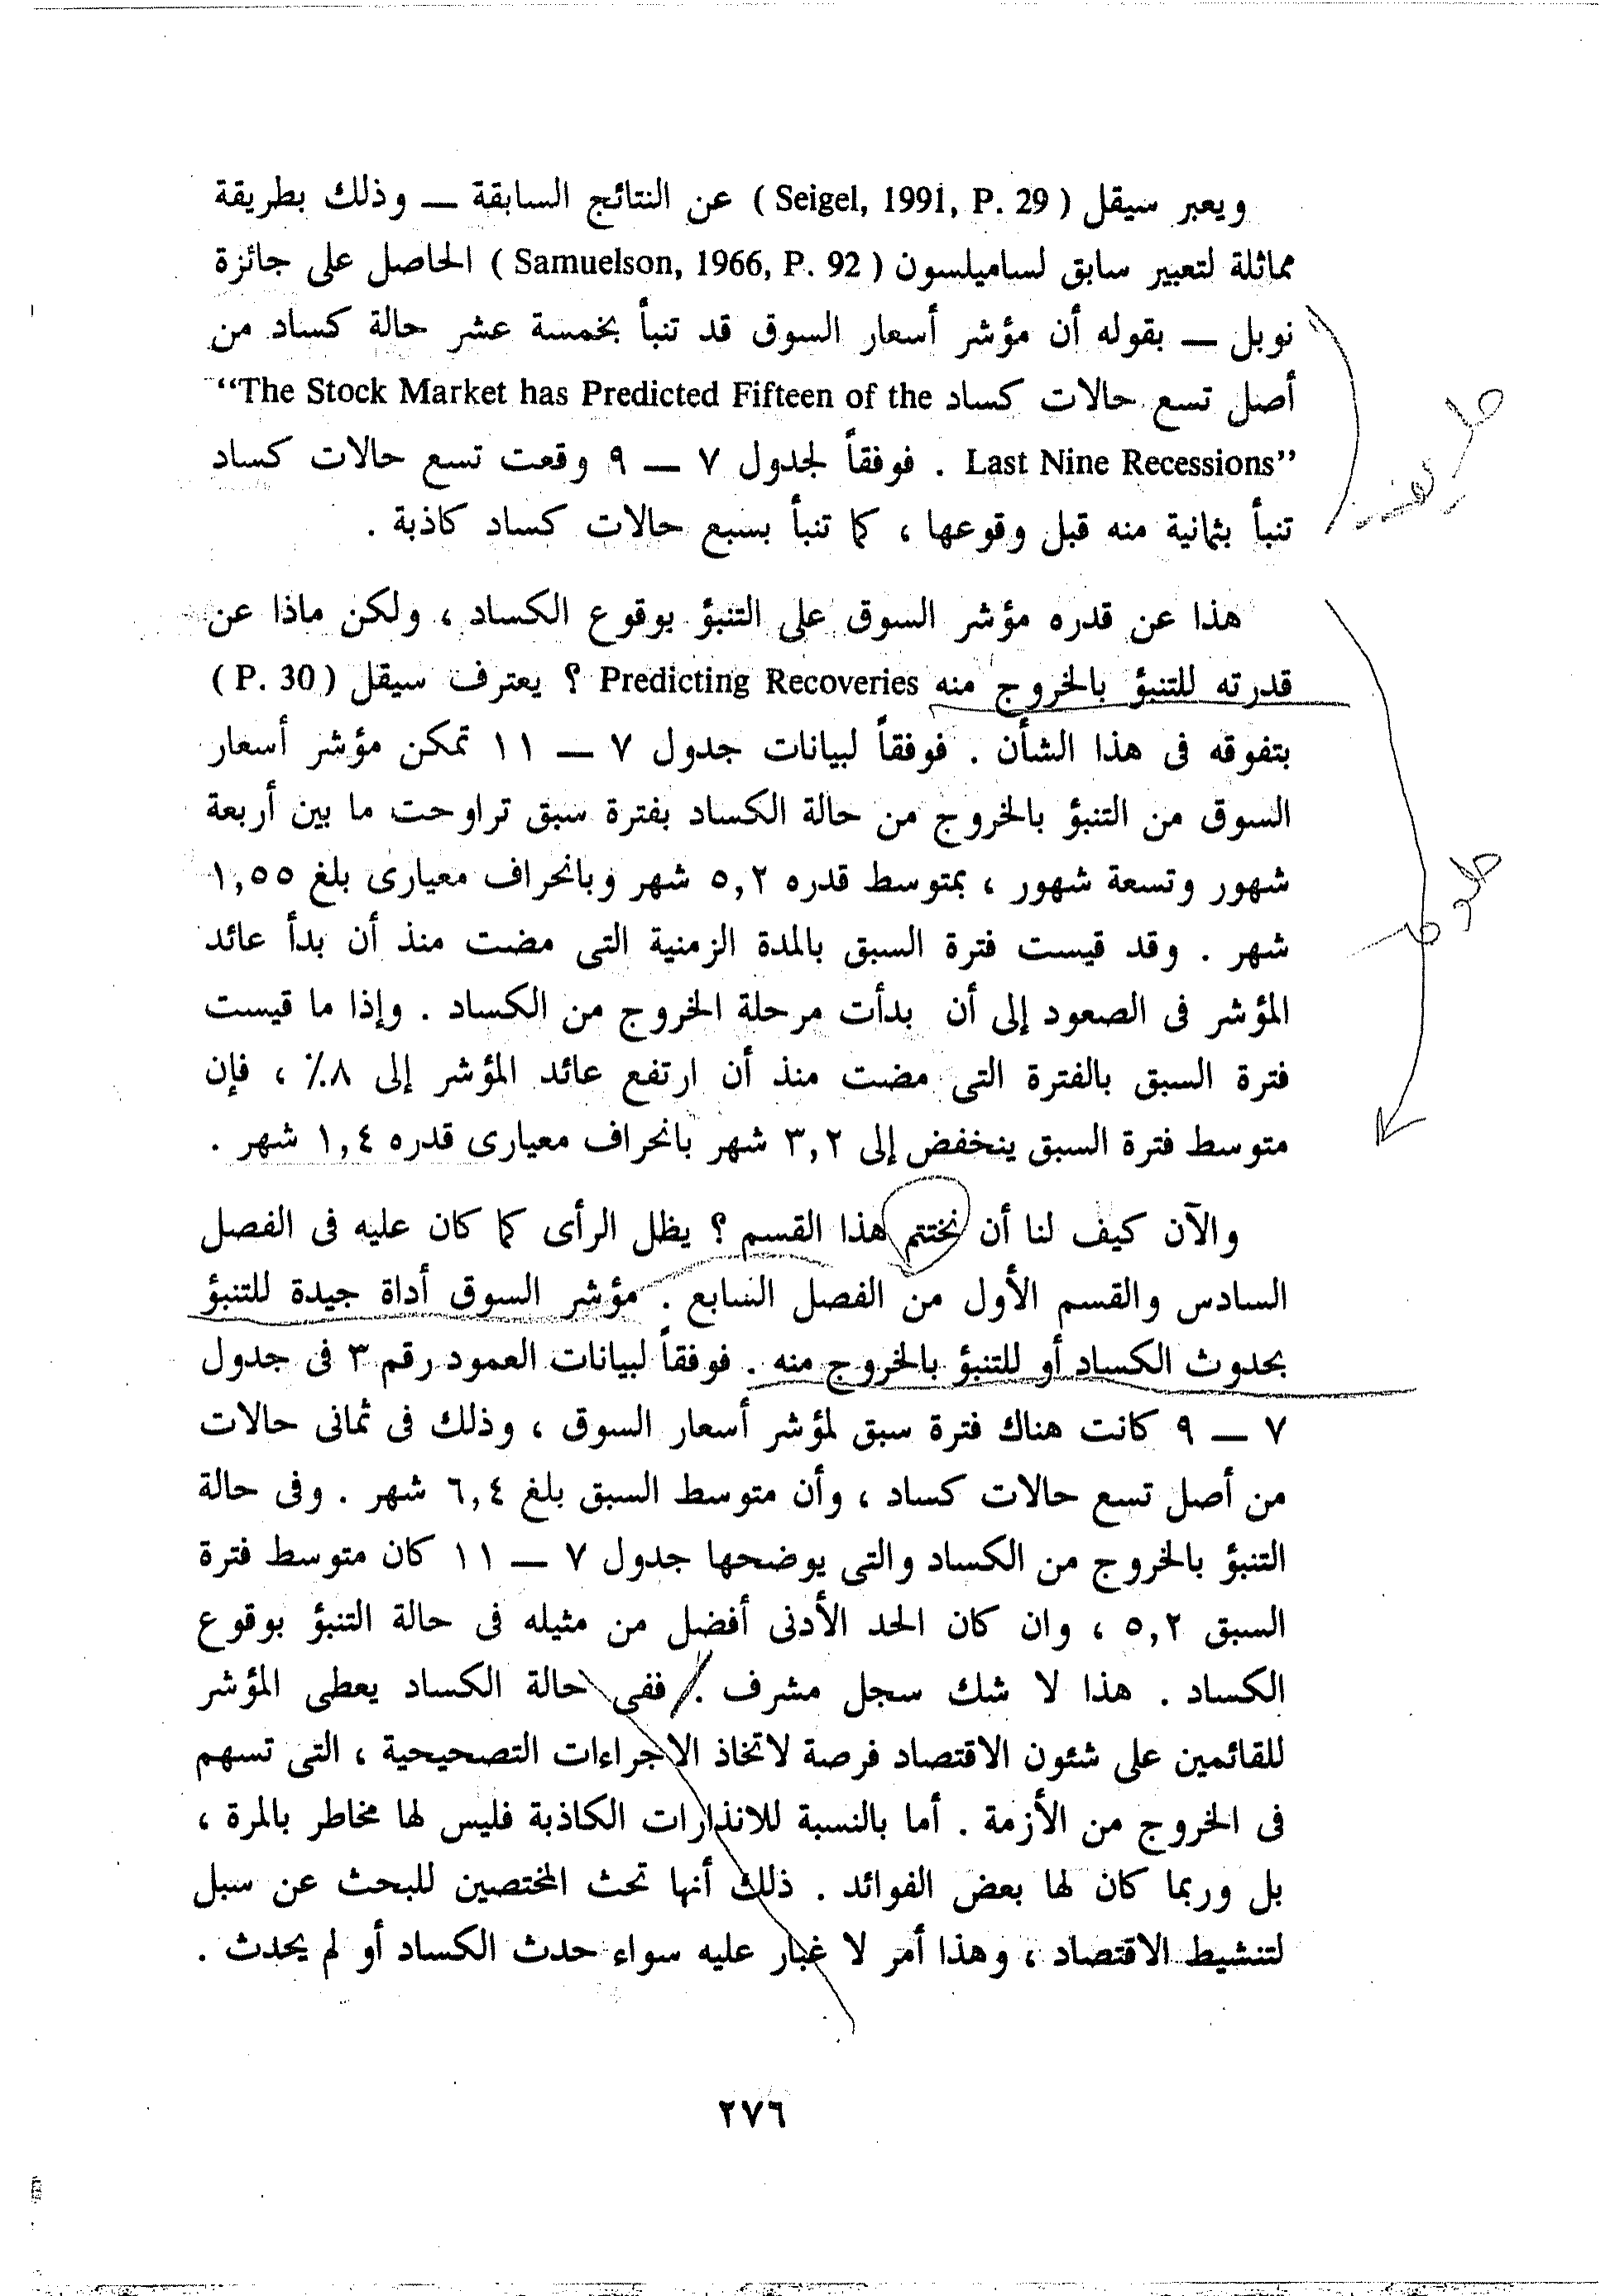 ويعبر سيقل ( Seigel, 1991, P. 29 ) عن النتائج السابقة — وذلك بطريقة
مماثلة لتعبير سابق لساميلسون ( Samuelson, 1966, P. 92 ) الحاصل على جائزة
نوبل — بقوله أن مؤشر أسعار السوق قد تنبأ بخمسة عشر حالة كساد من
أصل تسع حالات كساد “The Stock Market has Predicted Fifteen of the
Last Nine Recessions” . فوفقاً لجدول ٧ — ٩ وقعت تسع حالات كساد
تنبأ بثمانية منه قبل وقوعها ، كما تنبأ بسبع حالات كساد كاذبة .
هذا عن قدره مؤشر السوق على التنبؤ بوقوع الكساد ، ولكن ماذا عن
قدرته للتنبؤ بالخروج منه Predicting Recoveries ؟ يعترف سيقل ( P. 30 )
بتفوقه فى هذا الشأن . فوفقاً لبيانات جدول ٧ — ١١ تمكن مؤشر أسعار
السوق من التنبؤ بالخروج من حالة الكساد بفترة سبق تراوحت ما بين أربعة
شهور وتسعة شهور ، بمتوسط قدره ٥,٢ شهر وبانحراف معيارى بلغ ١,٥٥
شهر . وقد قيست فترة السبق بالمدة الزمنية التى مضت منذ أن بدأ عائد
المؤشر فى الصعود إلى أن بدأت مرحلة الخروج من الكساد . وإذا ما قيست
فترة السبق بالفترة التى مضت منذ أن ارتفع عائد المؤشر إلى ٨٪ ، فإن
متوسط فترة السبق ينخفض إلى ٣,٢ شهر بانحراف معيارى قدره ١,٤ شهر .
والآن كيف لنا أن نختتم هذا القسم ؟ يظل الرأى كما كان عليه فى الفصل
السادس والقسم الأول من الفصل السابع . مؤشر السوق أداة جيدة للتنبؤ
بحدوث الكساد أو للتنبؤ بالخروج منه . فوفقاً لبيانات العمود رقم ٣ فى جدول
٧ — ٩ كانت هناك فترة سبق لمؤشر أسعار السوق ، وذلك فى ثمانى حالات
من أصل تسع حالات كساد ، وأن متوسط السبق بلغ ٦,٤ شهر . وفى حالة
التنبؤ بالخروج من الكساد والتى يوضحها جدول ٧ — ١١ كان متوسط فترة
السبق ٥,٢ ، وان كان الحد الأدنى أفضل من مثيله فى حالة التنبؤ بوقوع
الكساد . هذا لا شك سجل مشرف . ففى حالة الكساد يعطى المؤشر
للقائمين على شئون الاقتصاد فرصة لاتخاذ الاجراءات التصحيحية ، التى تسهم
فى الخروج من الأزمة . أما بالنسبة للانذارات الكاذبة فليس لها مخاطر بالمرة ،
بل وربما كان لها بعض الفوائد . ذلك أنها تحث المختصين للبحث عن سبل
لتنشيط الاقتصاد ، وهذا أمر لا غبار عليه سواء حدث الكساد أو لم يحدث .
٢٧٦